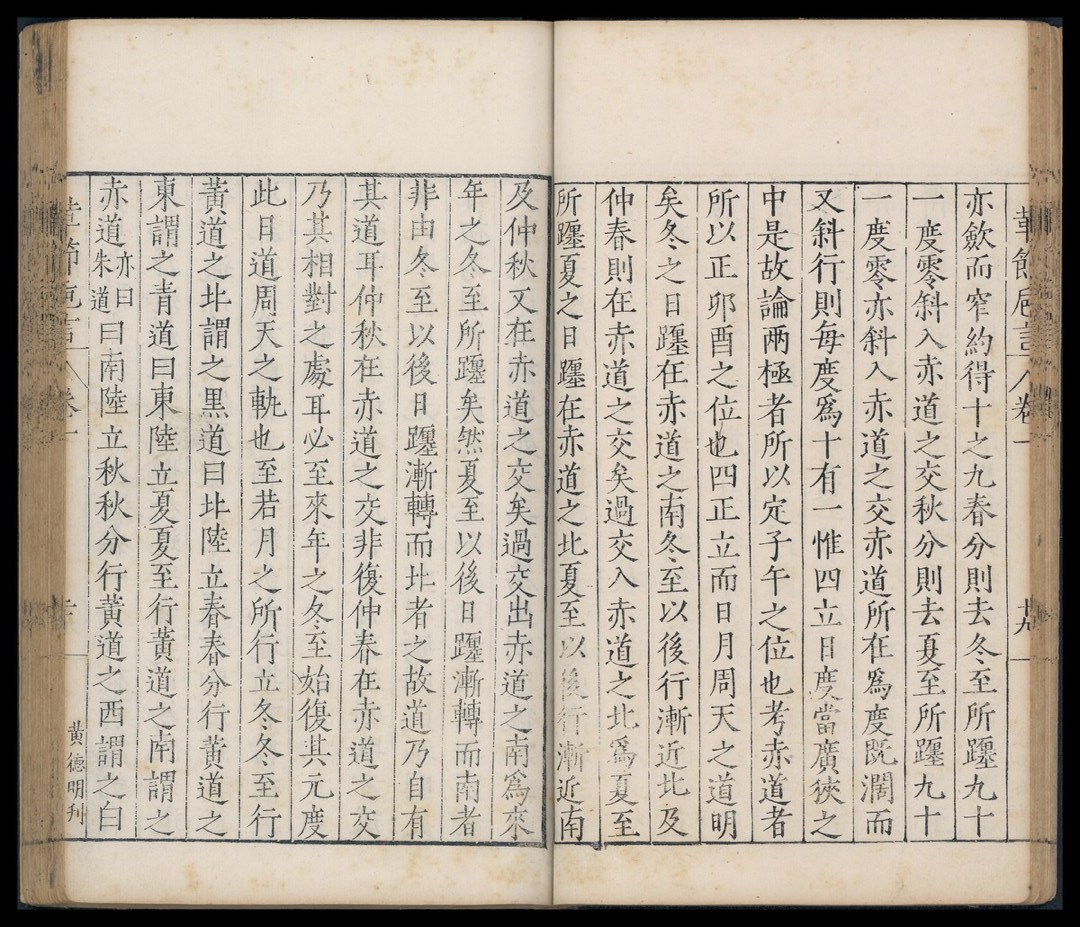 亦斂而窄約得十之九春分則去冬至所躔九十
一度零斜入赤道之交秋分則去夏至所躔九十
一度零亦斜入赤道之交赤道所在爲度既濶而
又斜行則每度爲十有一惟四立日度當廣狹之
中是故論兩極者所以定子午之位也考赤道者
所以正卯酉之位也四正立而日月周天之道明
矣冬之日躔在赤道之南冬至以後行漸近北及
仲春則在赤道之交矣過交入赤道之北爲夏至
所躔夏之日躔在赤道之北夏至以後行漸近南
及仲秋又在赤道之交矣過交出赤道之南爲來
年之冬至所躔矣然夏至以後日躔漸轉而南者
非由冬至以後日躔漸轉而北者之故道乃自有
其道耳仲秋在赤道之交非復仲春在赤道之交
乃其相對之處耳必至來年之冬至始復其元度
此日道周天之軌也至若月之所行立冬冬至行
黃道之北謂之黑道曰北陸立春春分行黃道之
東謂之青道曰東陸立夏夏至行黃道之南謂之
赤道亦曰朱道曰南陸立秋秋分行黃道之西謂之白
卷一
黃德明刋